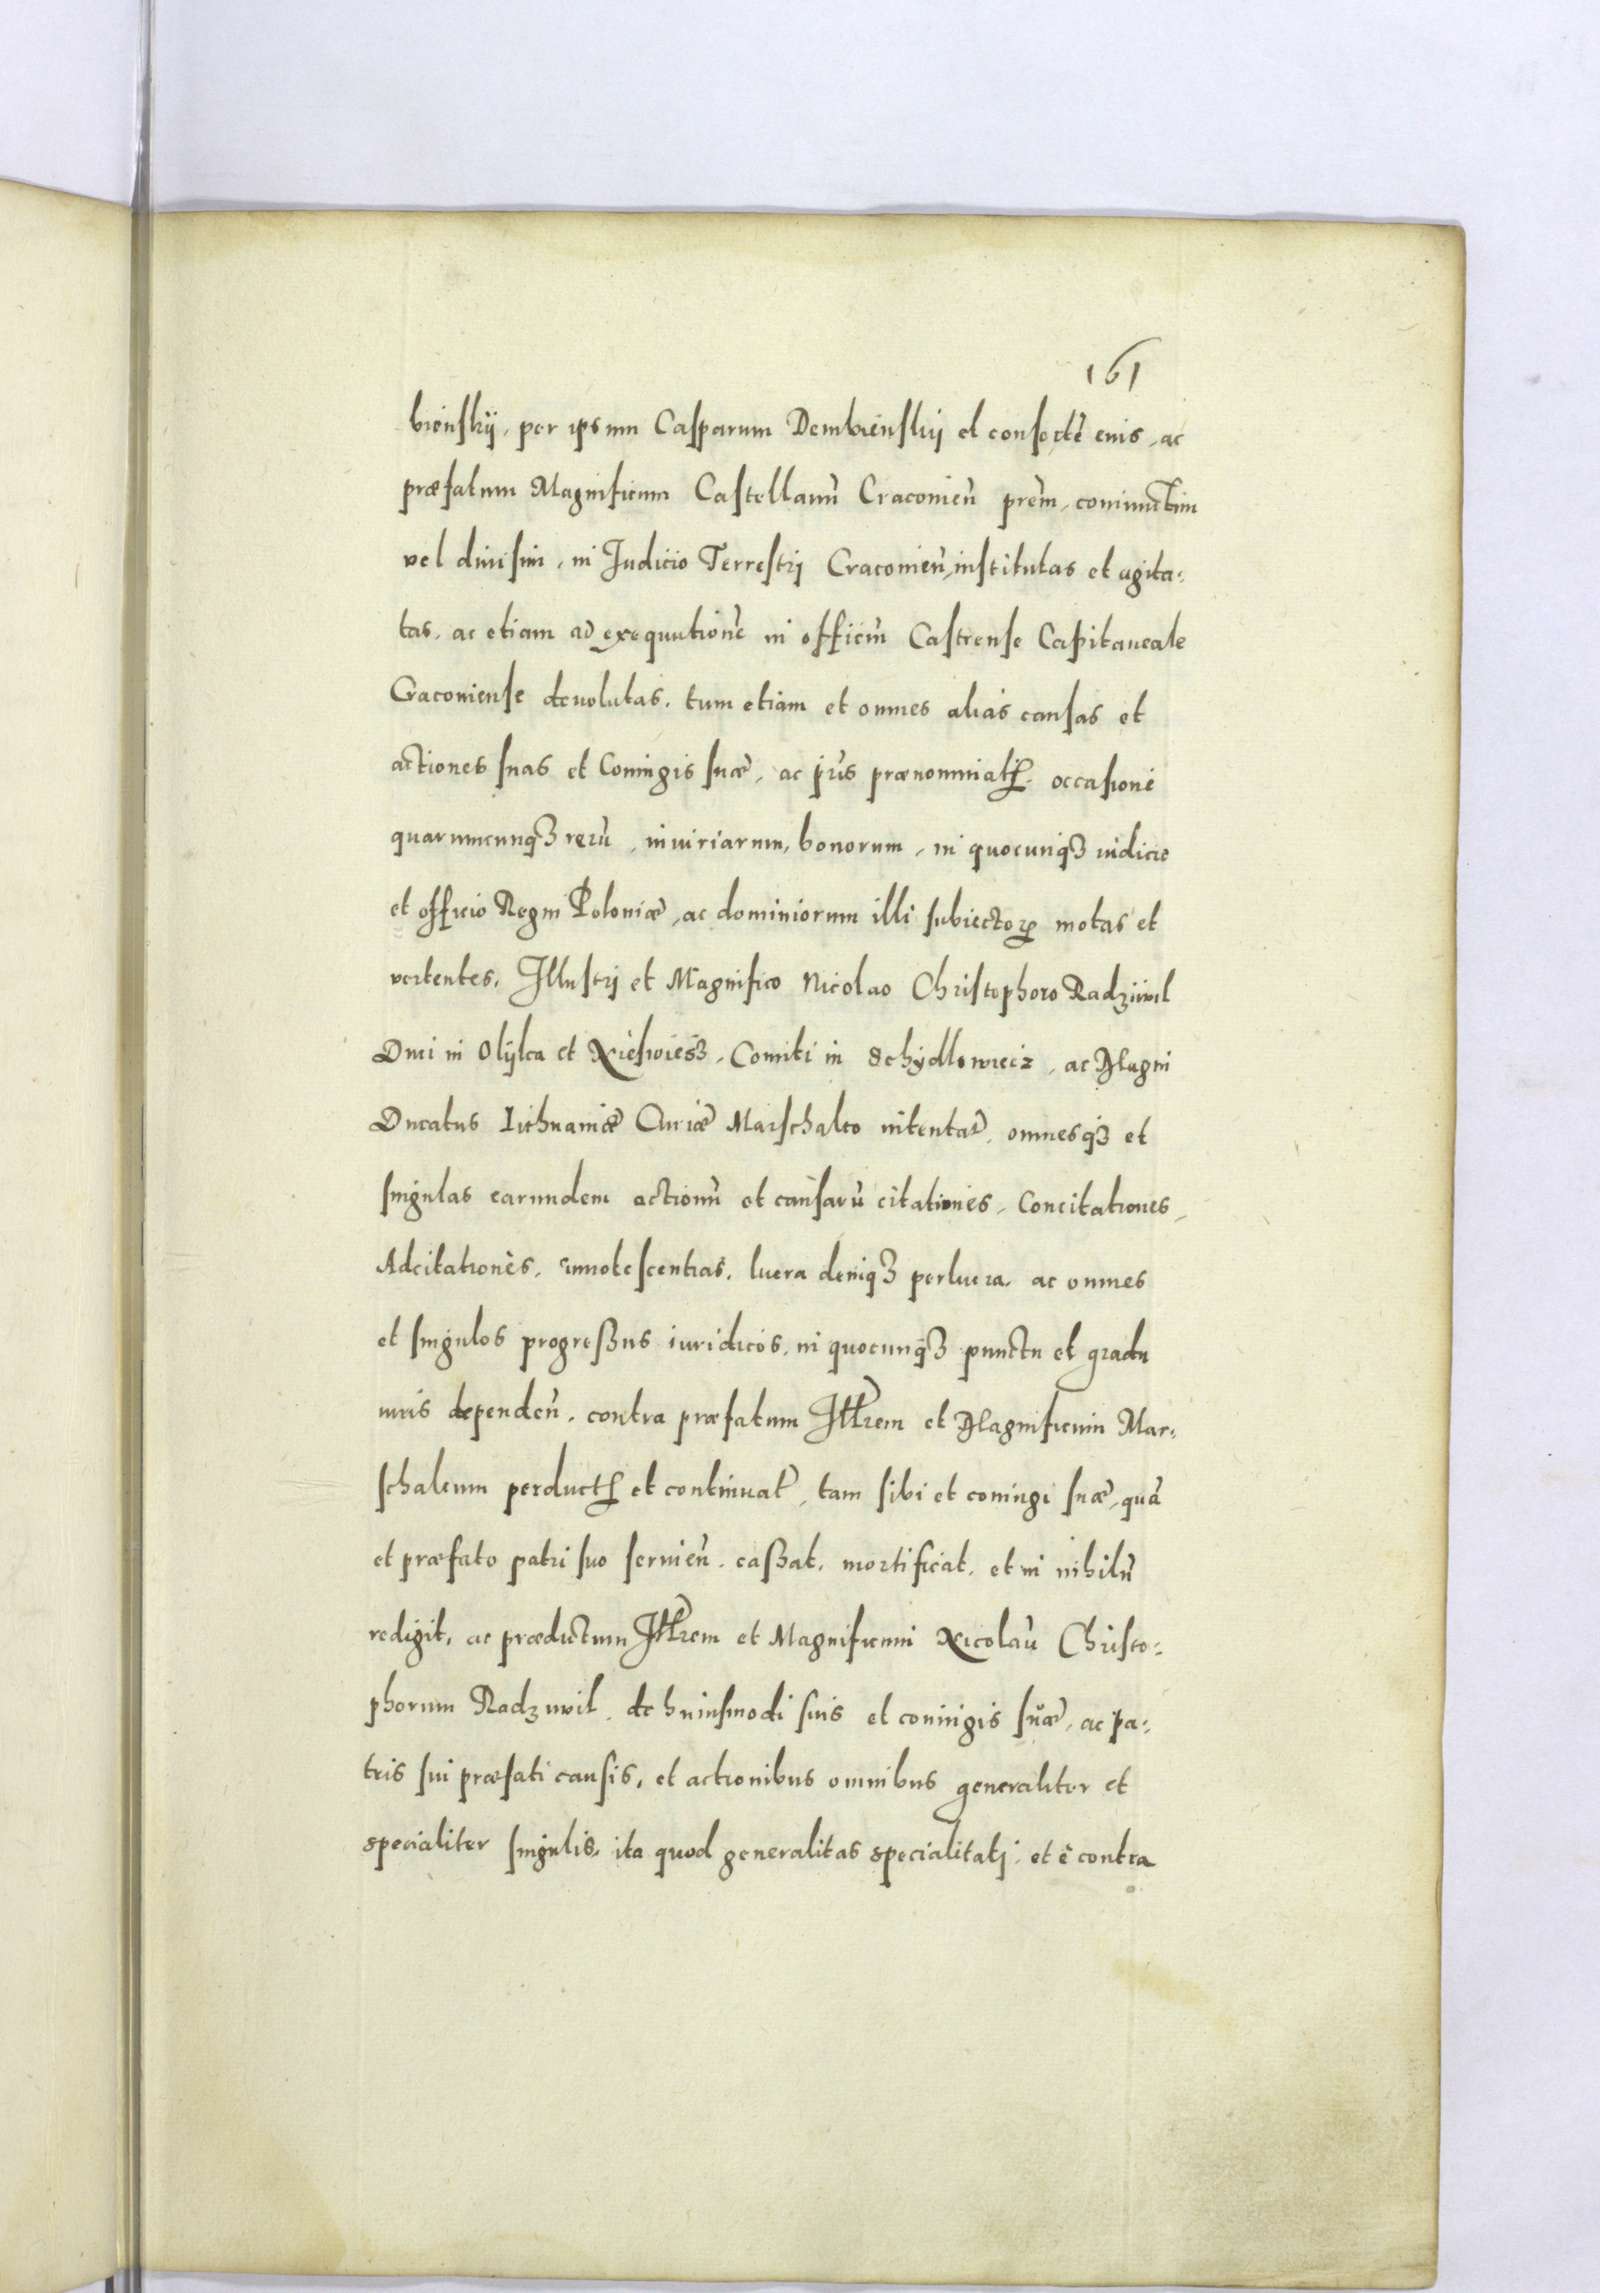 161
bienskij, per ipsum Casparum Dembienskij et consortē eius, ac
præfatum Magnificum Castellanū Cracouien̄ prēm, coniunctim
vel diuisim, in Judicio Terrestrj Cracouien̄ institutas et agita-
tas, ac etiam ad exequutionē in officiū Castrense Capitaneale
Cracouiense deuolutas, tum etiam et omnes alias causas et
actiones suas et Coniugis suæ, ac p̄ris prænominati, occasione
quarumcunq3 rerū, iniuriarum, bonorum, in quocunq3 iudicio
et officio Regni Poloniæ, ac dominiorum illi subiectoꝝ motas et
vertentes, Jllustrj et Magnifico Nicolao Christophoro Radziwil
Duci in Olÿka et Nieswiesz, Comiti in Schÿdlowiecz, ac Magni
Ducatus Lithuaniæ Curiæ Marschalco intentat̄, omnesq3 et
singulas earundem actionū et causarū citationes, Concitationes,
Adcitationes, innotescentias, lucra deniq3 perlucra, ac omnes
et singulos progressus iuridicos, in quocunq3 punctu et gradu
iuris dependen̄, contra præfatum Jll̄rem et Magnificum Mar-
schalcum perduct̄ et continuat̄, tam sibi et coniugi suæ, quā
et præfato patri suo seruien̄, cassat, mortificat, et in nihilū
redigit, ac prædictum Jll̄rem et Magnificum Nicolaū Christo-
phorum Radziwil, de huiusmodi suis et coniugis suæ, ac pa-
tris sui præfati causis, et actionibus omnibus generaliter et
specialiter singulis, ita quod generalitas specialitatj, et è contra